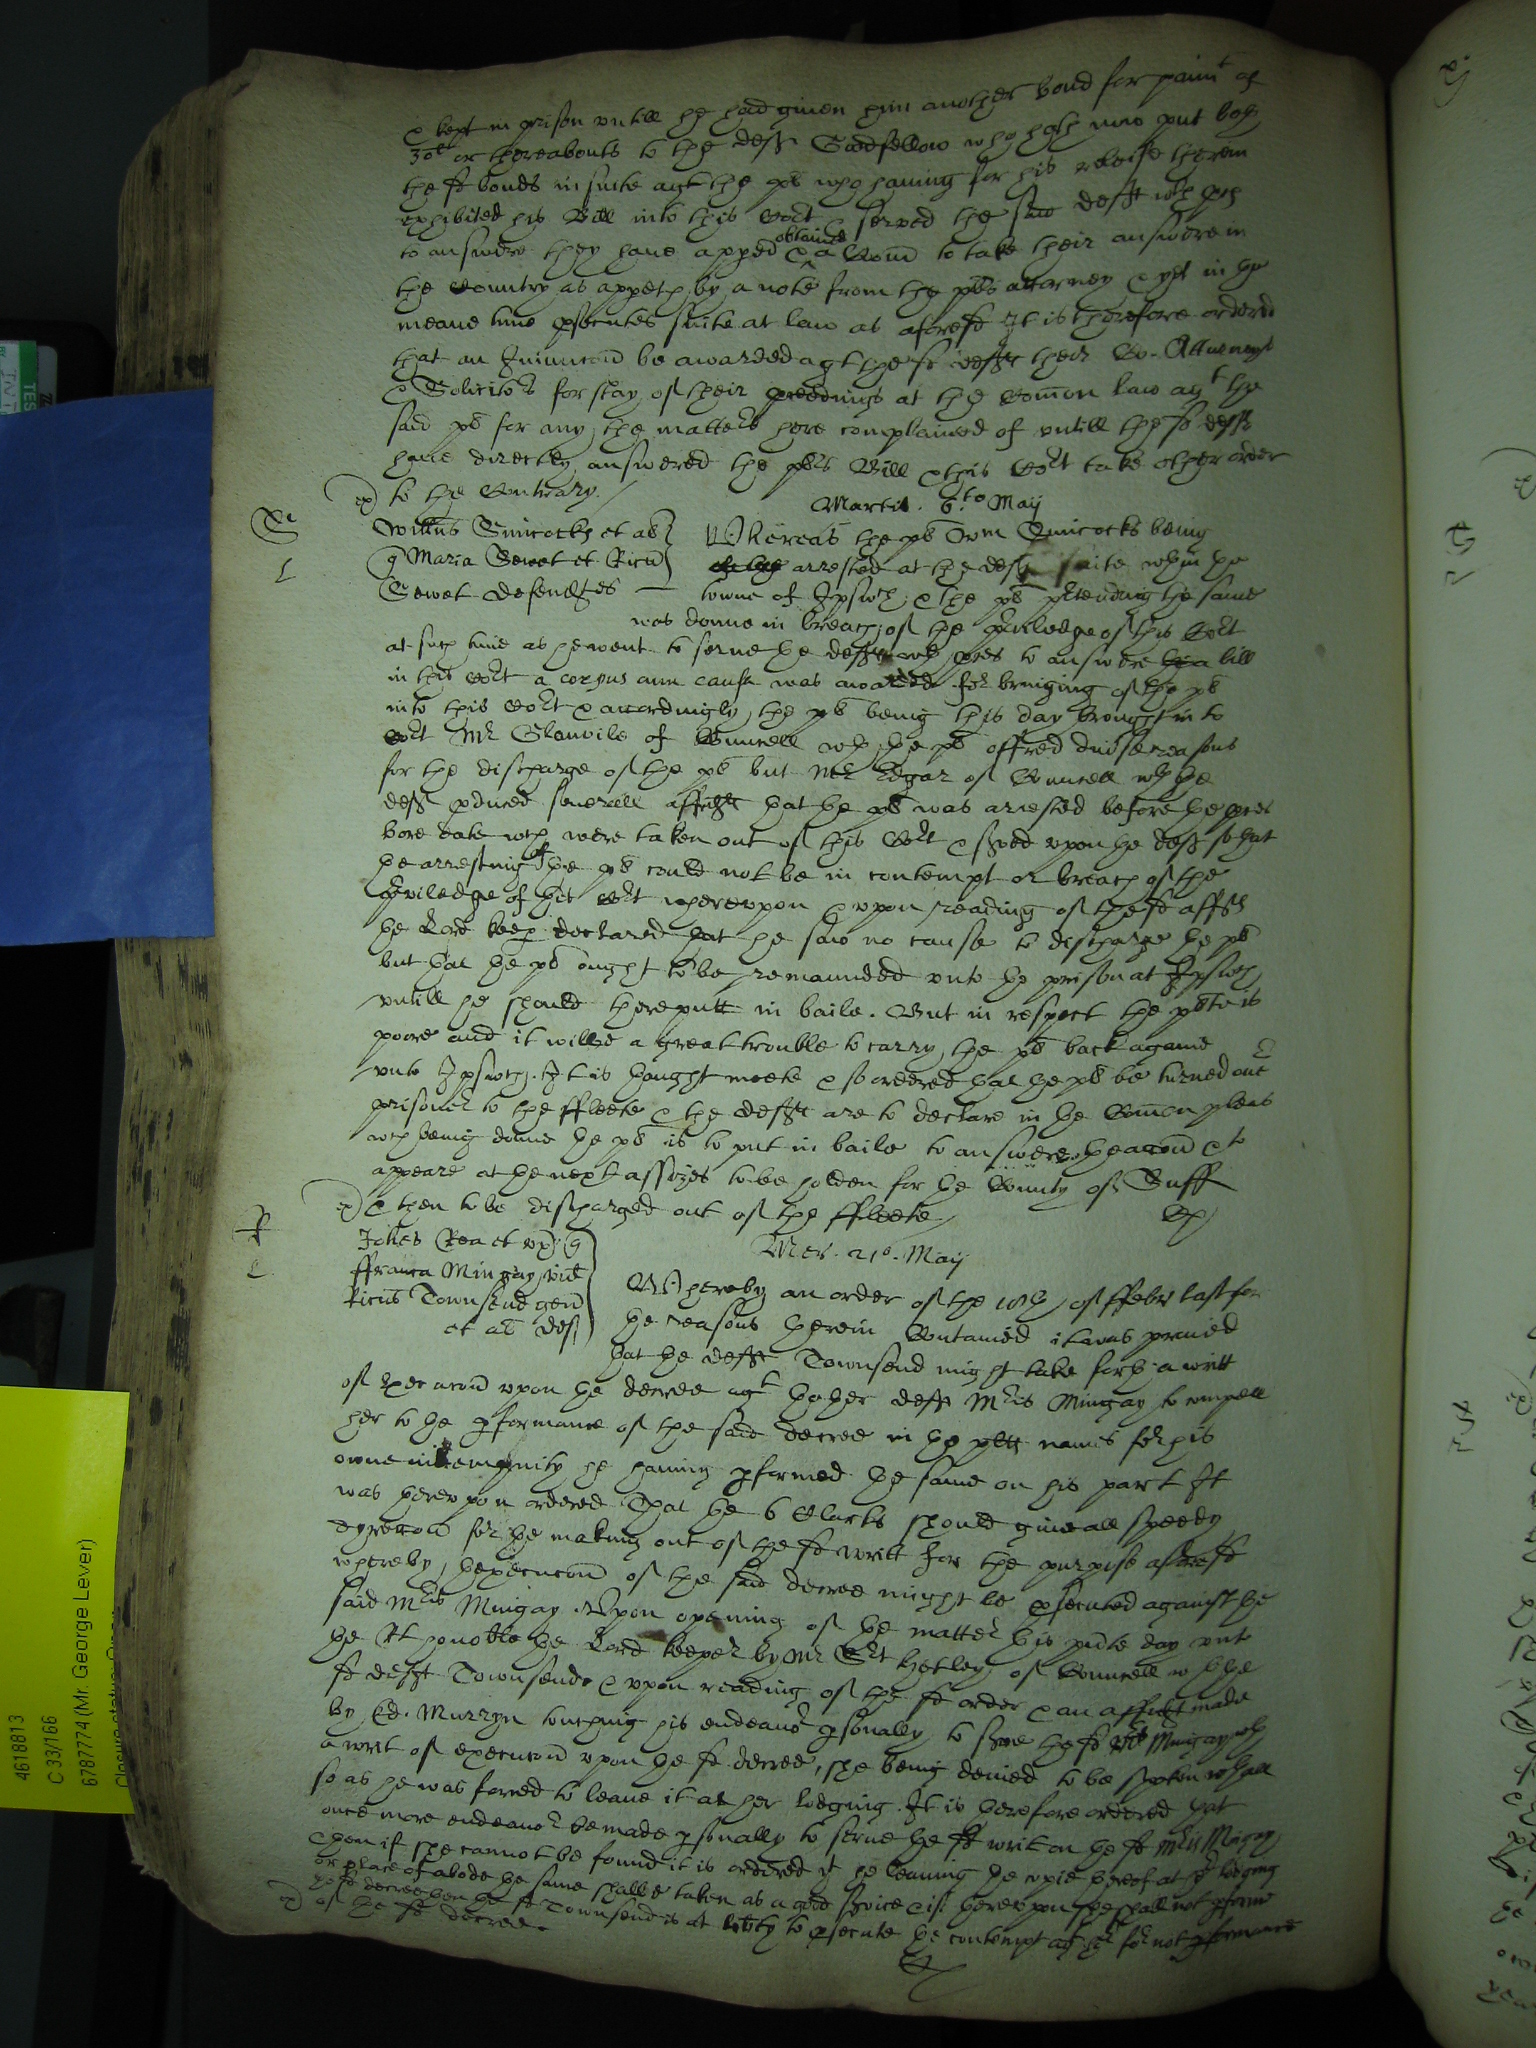 & kept in prison untill he had given him another bond for paimt of
30l or thereabouts to the deft Goodfellow who hath now put both
the sd bonds in suite agt the pl who having for his releife therein
exhibited his Bill into this Cort & served the said defts wth proces
to answere they have apped & obtained a Com to take their answere in
the Country as appeth by a note from the pls attorney & yet in the
meane time psecutes suite at law as aforesd It is therefore ordered
that an Iniunccon be awarded agt the sd defts their Co. Attorneys
& Solicitors for stay of their pceedings at the Comon law agt the
said pl for any the matters here complained of untill the sd defts
have directly answered the pls Bill & this Cort take other order
to the Contrary.
Martis. 6.to Maij
Willus Smicocks et al
q Maria Sewet et Ricus
Sewet defendtes
Whereas the pl Wm Smicocks being
arrested at the defts suite wthin the
towne of Ipswch & the pl ptending the same
was donne in breach of the priviledge of this Cort
at such time as he went to serve the defts wth pces to answere his bill
in this Cort a corpus cum causa was awarded for bringing of the pl
into this Cort & accordingly the pl being this day brought into
Cort Mr Glanvile of Councell wth the pl offred divers reasons
for the discharge of the pl but Mr Edgar of Councell wth the
deft pduced severall affidts that the pl was arrested before the pces
bore date wch were taken out of this Cort & served upon the deft so that
the arresting of the pl could not be in contempt or breach of the
priviledge of this Cort whereupon & upon reading of the sd affidts
the Lord keep declared that he saw no cause to discharge the pl
but that the pl ought to be remaunded unto the prison at Ipswch
untill he should there putt in baile. But in respect the pl is
poore and it wilbe a great trouble to carry the pl back againe
unto Ipswch. It is thought meete & so ordered that the pl be turned over
prisoner to the ffleete & the defts are to declare in the Comon pleas
wch being donne the pl is to put in baile to answere the accon & to
appeare at the next assizes to be holden for the County of Suff
& then to be discharged out of the ffleete
Johes Rea et ux q
ffranca Mingay vid
Ricus Townsend gen
et al def
Mer. 21o. Maij
Whereby an order of the 18th of ffebr last for
the reasons therein Contained it was praied
that the deft Townsend might take forth a writt
of Execucon upon the decree agt thother deft Mris Mingay to compell
her to the pformance of the said decree in the plts names for his
owne indempnity he having pformed the same on his part It
was thereupon ordered That the 6 Clarks should give all speedy
dyreccon for the making out of the sd writt for the purpose aforesd
whereby thexecucon of the said decree might be psecuted against the
said Mris Mingay. Upon opening of the matter this pnte day unto
the Rt honoble the Lord keeper by Mr Sert Hetley of Councell wth the
sd deft Townsend & upon reading of the sd order & an affidt made
by Ed. Murryn touching his endeavor psonally to serve the sd Mris Mingay wth
a writ of execucon upon the sd decree, she being denied to be spoken wthall
so as he was forced to leave it at her lodging. It is therefore ordered that
once more endeavor be made psonally to serve the sd writ on the sd Mris Mingay
& then if she cannot be found it is ordered yt the leaving the copie thereof at her lodging
or place of abode the same shalbe taken as a good service & if thereupon she shall not pforme
the sd decree then the sd Townsend is at libty to psecute the contempt agt her for not pformance
of the sd decree.
4618813
C 33/166
6787774 (Mr. George Lever)